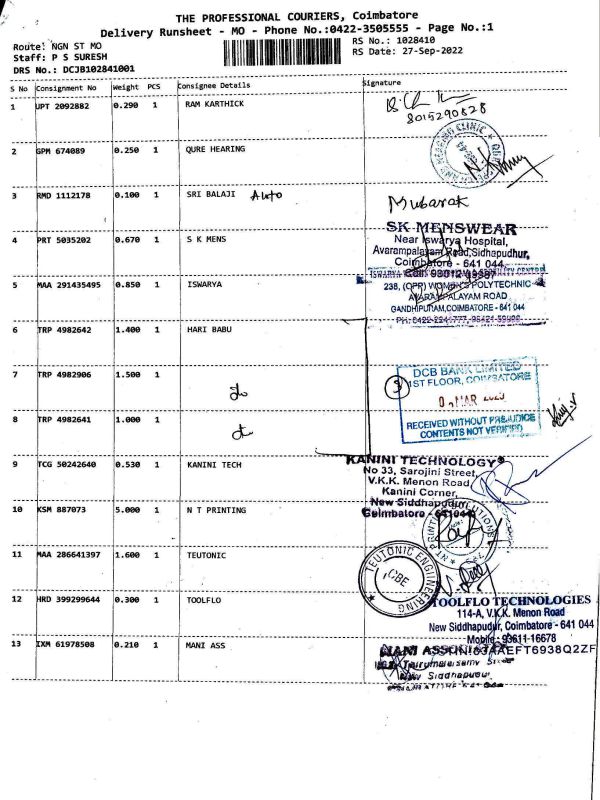 THE PROFESSIONAL COURIERS, Coimbatore
Delivery Runsheet - MO - Phone No.:0422-3505555 - Page No.:1
Route: NGN ST MO
RS No.: 1028410
Staff: P S SURESH
RS Date: 27-Sep-2022
DRS No.: DCJB102841001
S No Consignment No Weight PCS Consignee Details Signature
1 UPT 2092882 0.290 1 RAM KARTHICK
8015290828
2 GPM 674089 0.250 1 QURE HEARING
3 RMD 1112178 0.100 1 SRI BALAJI Auto Mubarak
4 PRT 5035202 0.670 1 S K MENS
SK MENSWEAR
Near Iswarya Hospital,
Avarampalayam Road, Sidhapudhur,
Coimbatore - 641 044
5 MAA 291435495 0.850 1 ISWARYA
238, (OPP) WOMEN'S POLYTECHNIC
AVARAMPALAYAM ROAD
GANDHIPURAM, COIMBATORE - 641 044
6 TRP 4982642 1.400 1 HARI BABU
7 TRP 4982906 1.500 1
do
3
DCB BANK LIMITED
1ST FLOOR, COIMBATORE
RECEIVED WITHOUT PREJUDICE
CONTENTS NOT VERIFIED
8 TRP 4982641 1.000 1
9 TCG 50242640 0.530 1 KANINI TECH
KANINI TECHNOLOGY
No 33, Sarojini Street,
V.K.K. Menon Road
Kanini Corner,
New Siddhapudur,
Coimbatore - 641044
10 KSM 887073 5.000 1 N T PRINTING
11 MAA 286641397 1.600 1 TEUTONIC
TEUTONIC ENGINEERING
CBE
12 HRD 399299644 0.300 1 TOOLFLO
TOOLFLO TECHNOLOGIES
114-A, V.K.K. Menon Road
New Siddhapudur, Coimbatore - 641 044
Mobile: 93611-16678
13 IXM 61978508 0.210 1 MANI ASS
New Siddhapudur